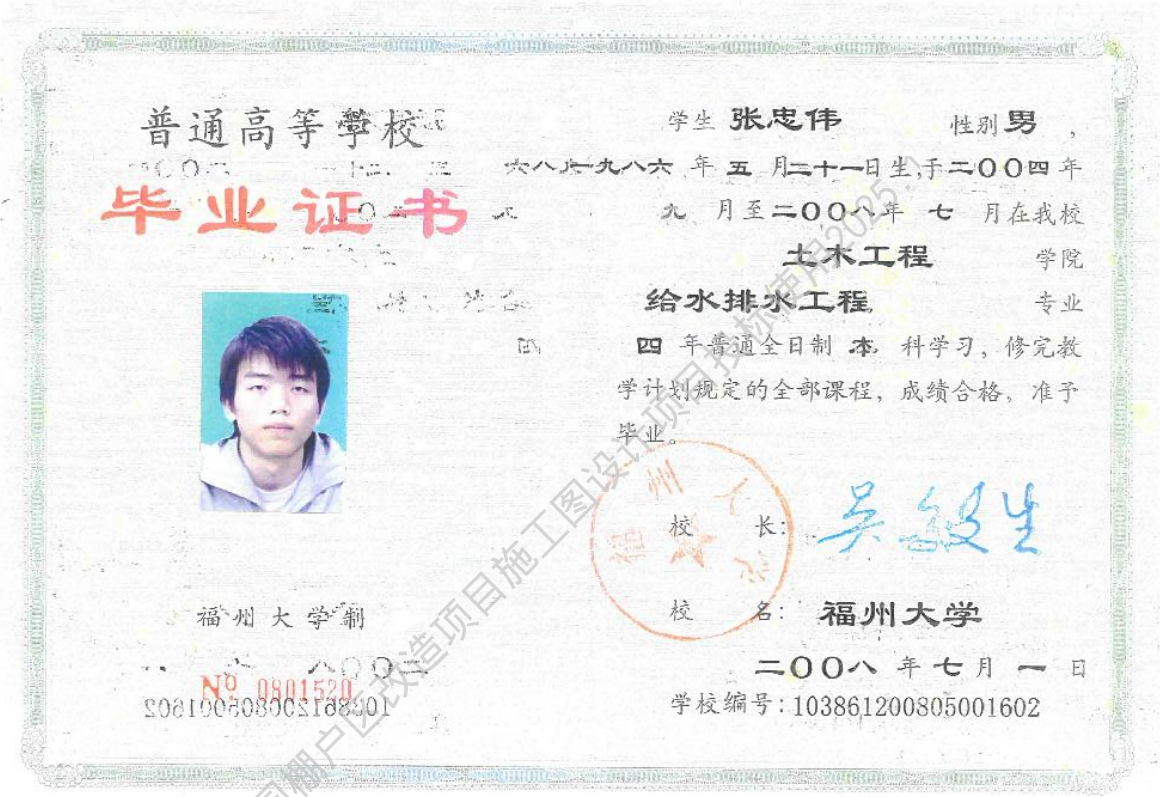 普通高等学校
毕业证书
福州大学制
Nº 0801520
学生 张忠伟 性别 男，
一九八六 年 五 月 二十一 日生,于 二〇〇四 年
九 月至 二〇〇八 年 七 月在我校
土木工程 学院
给水排水工程 专业
四 年普通全日制 本 科学习，修完教
学计划规定的全部课程，成绩合格，准予
毕业。
校 长: 吴敏生
校 名: 福州大学
二〇〇八 年 七 月 一 日
学校编号:103861200805001602
福州大学
棚户区改造项目施工图设计项目投标使用2025.